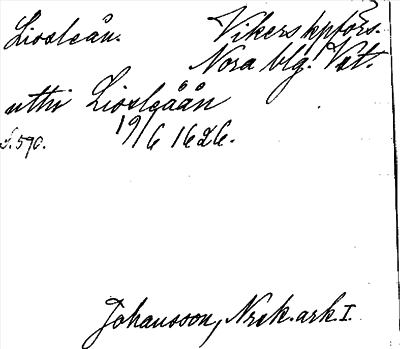 Liosleån. Vikers kpförs.
Nora blg. Vst.
uthi Liosleåån
19/6 1626.
S. 590.
Johansson, Nrck. ark. I.